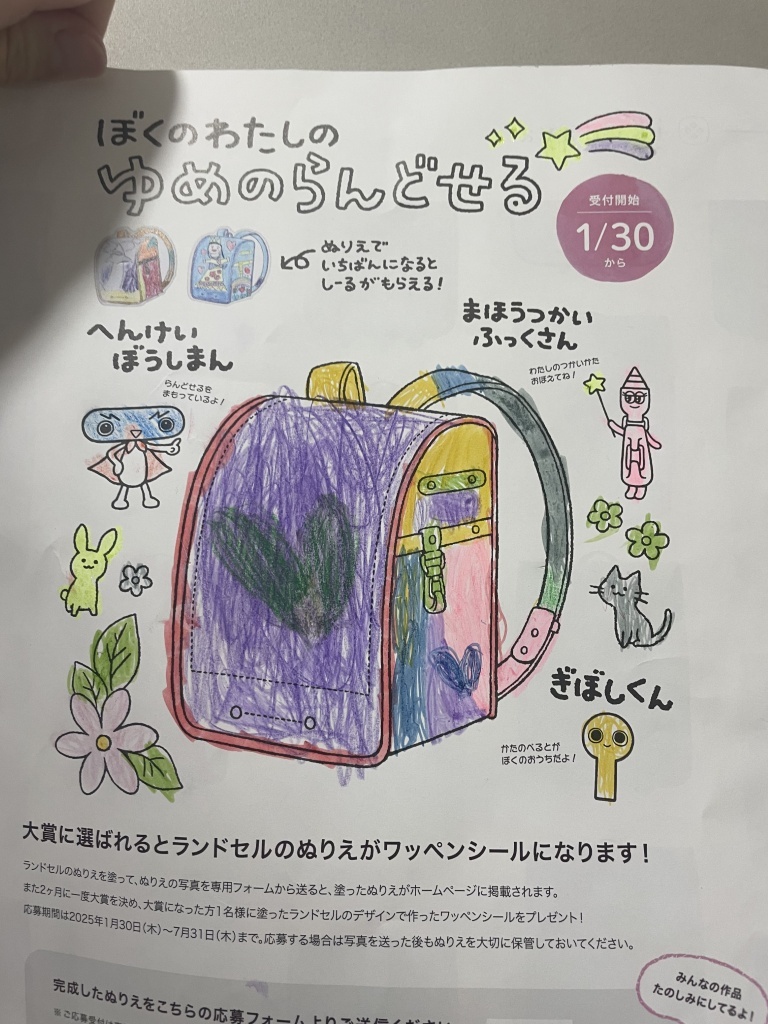 ぼくのわたしの
ゆめのらんどせる
受付開始
1/30
から
ぬりえで
いちばんになると
しーるがもらえる!
へんけい
ぼうしまん
らんどせるを
まもっているよ!
まほうつかい
ふっくさん
わたしのつかいかた
おぼえてね!
ぎぼしくん
かたのべるとが
ぼくのおうちだよ!
大賞に選ばれるとランドセルのぬりえがワッペンシールになります!
ランドセルのぬりえを塗って、ぬりえの写真を専用フォームから送ると、塗ったぬりえがホームページに掲載されます。
また2ヶ月に一度大賞を決め、大賞になった方1名様に塗ったランドセルのデザインで作ったワッペンシールをプレゼント!
応募期間は2025年1月30日(木)〜7月31日(木)まで。応募する場合は写真を送った後もぬりえを大切に保管しておいてください。
みんなの作品
たのしみにしてるよ!
完成したぬりえをこちらの応募フォームよりご送信ください
※ご応募受付は